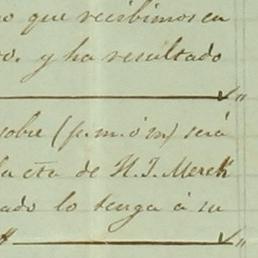 no que recibimos en
o. y ha resultado
sobre (p.m. ó m) será
la cta de H. J. Merck
ado lo tenga á su